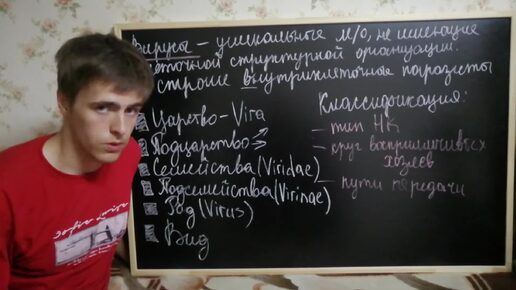 Вирусы – уникальные м/о, не имеющие
клеточной структурной организации.
строше внутриклеточные паразиты
Царство – Vira
Подцарство
Семейства (Viridae)
Подсемейства (Virinae)
Род (Virus)
Вид
Классификация:
– тип НК
– круг восприимчивых
хозяев
– пути передачи